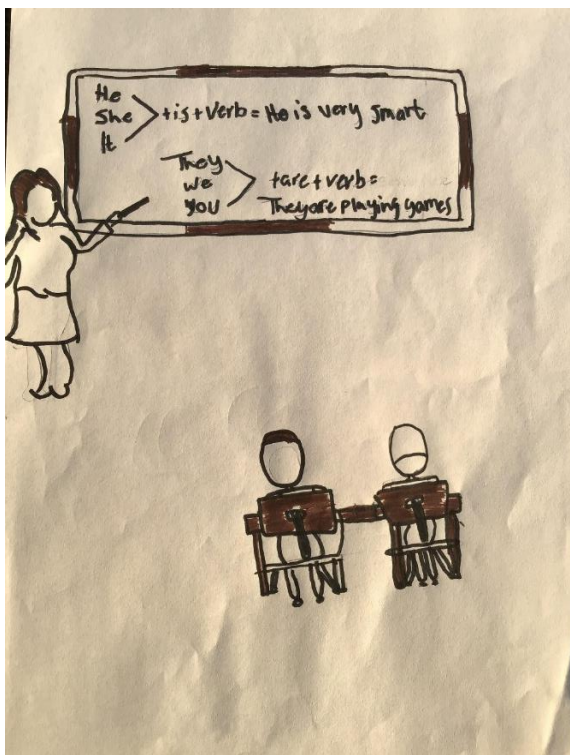 He
She
It
+is+verb = He is very smart
They
we
you
+are+verb =
They are playing games